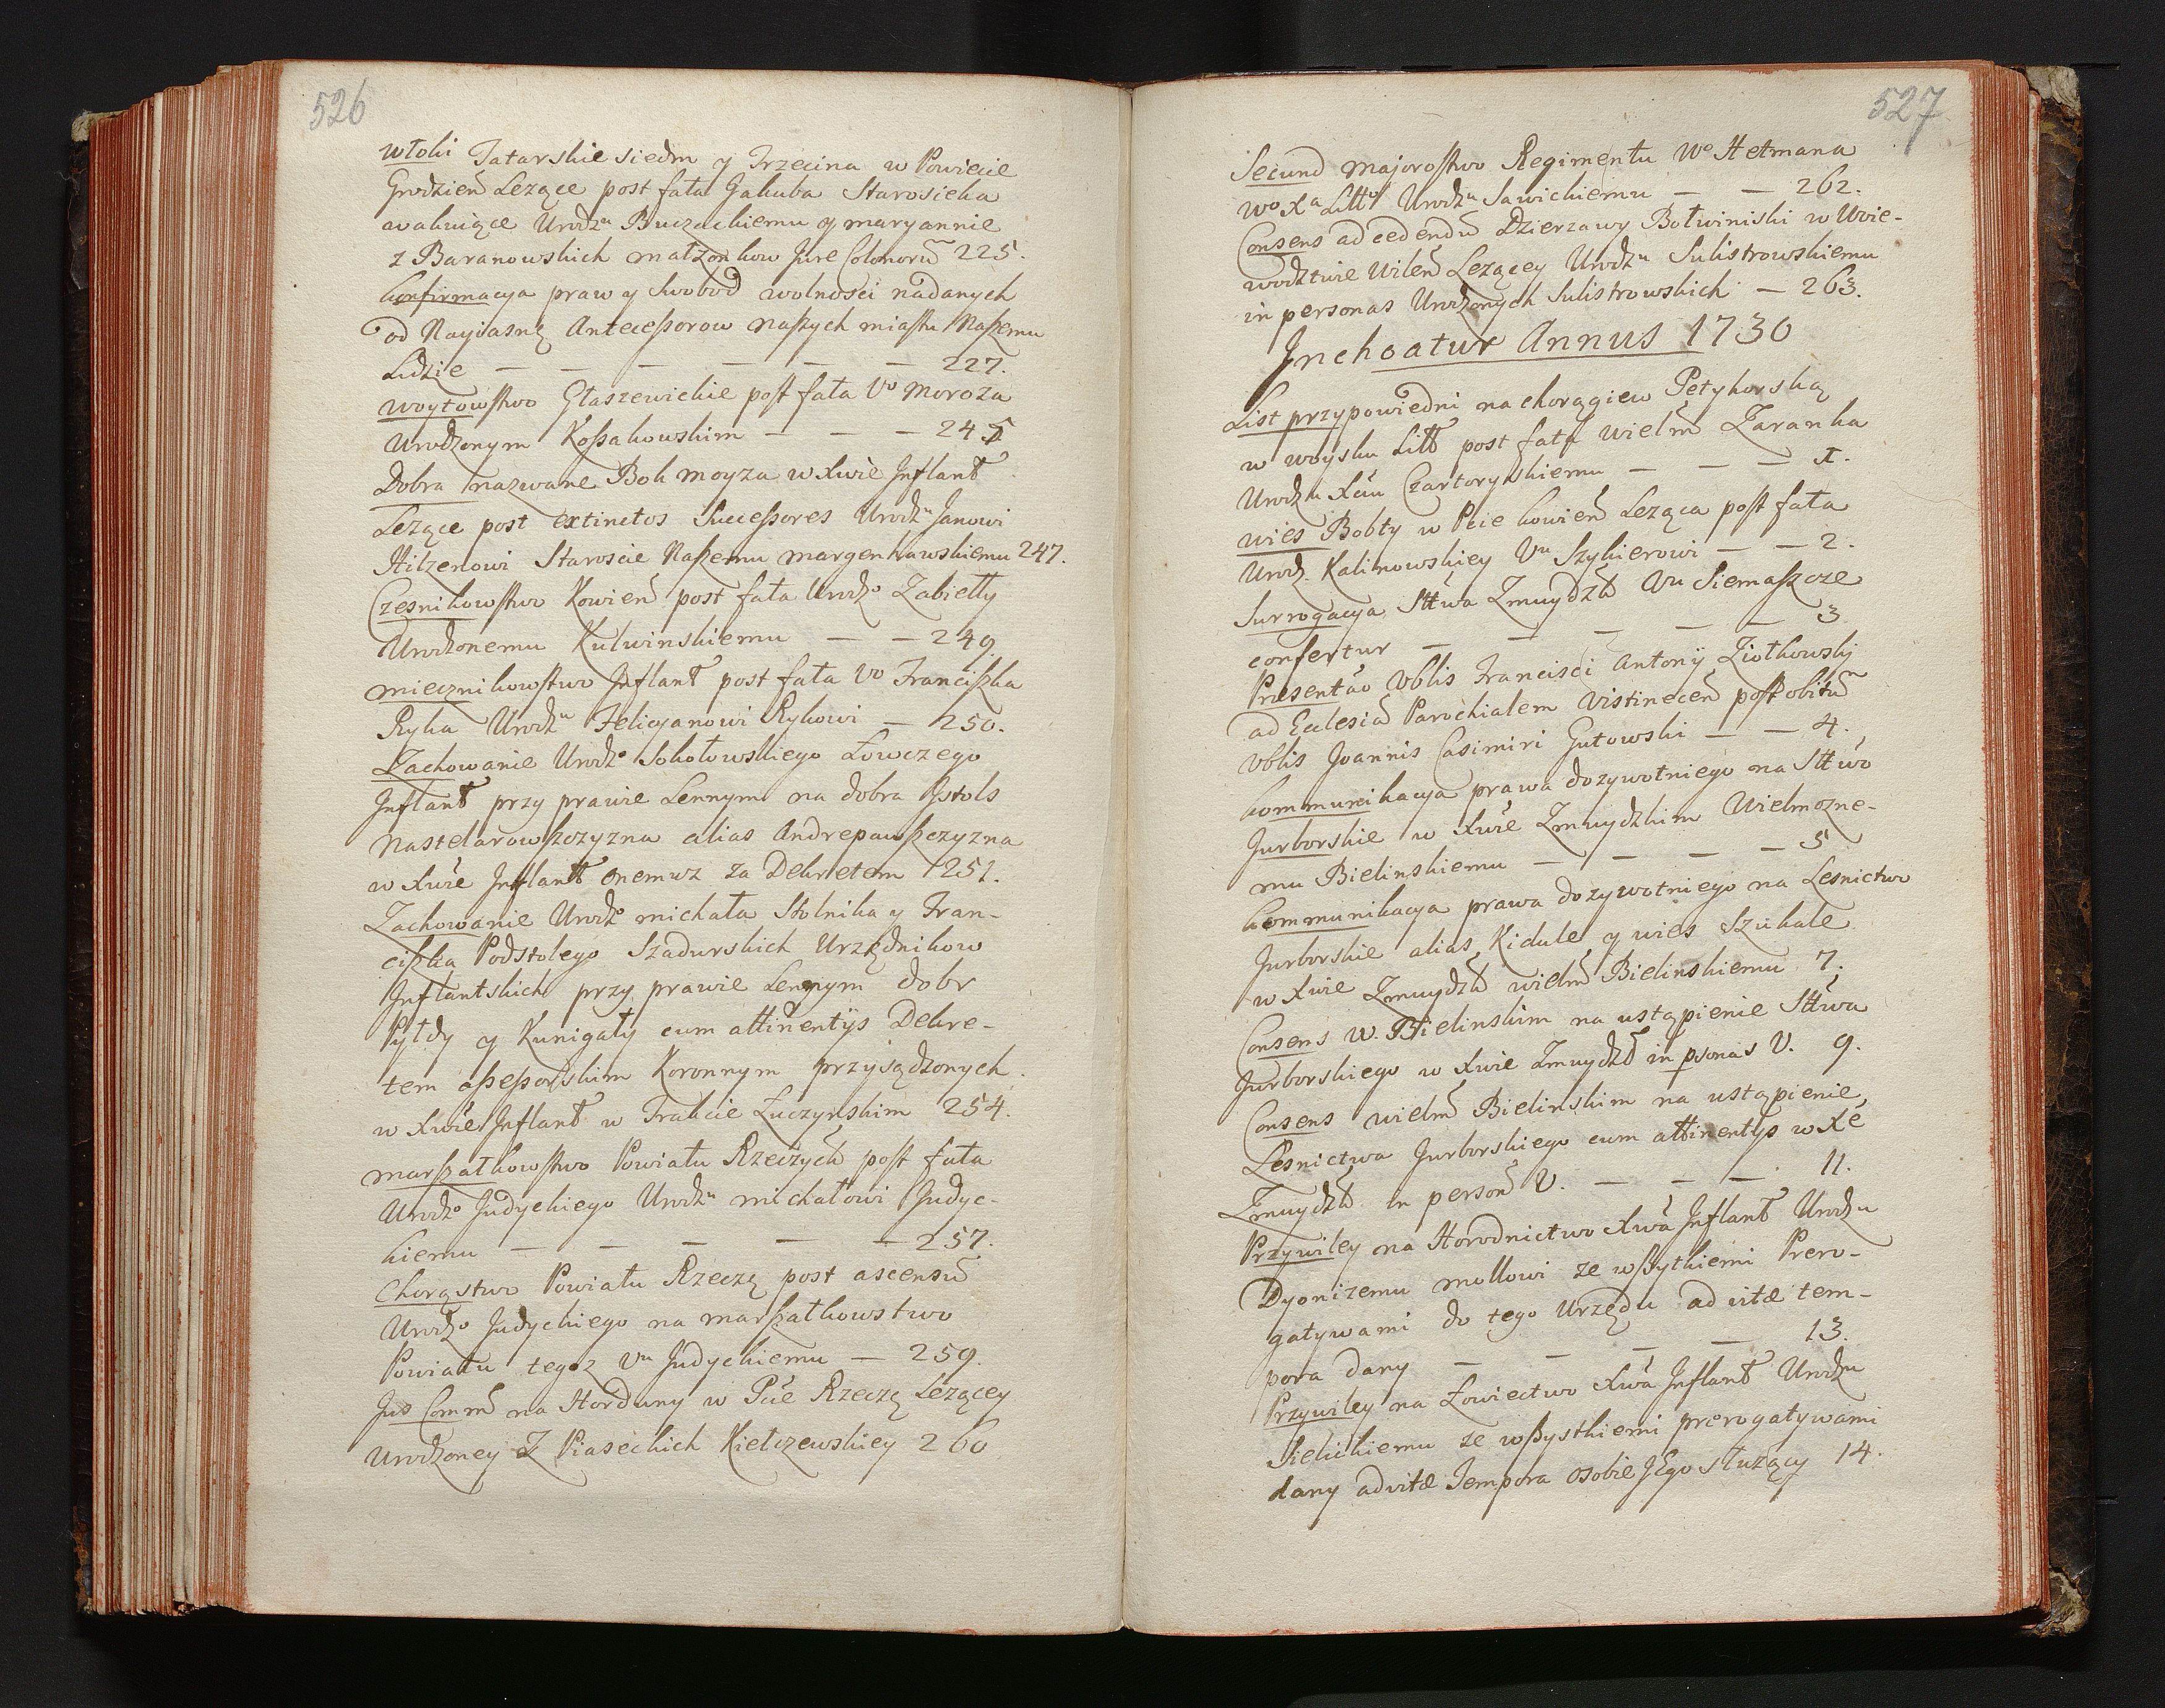 526
Włoki Tatarskie siedm y Trzecina w Powiecie
Grodzień Leząće post fata Jakuba Starosieka
wakuiące Urodzu Buczackiemu y maryannie
z Baranowskich małzonkow Jure Colonorū 225.
Konfirmacya praw y Swobod wolnosci nadanych
od Nayiasnz Antecessorow naszych miastu Naszemu
Lidzie — — — — — — 227.
Woytowstwo Głaszewickie post fata Vo Moroza
Urodzonym Kossakowskim — — — 245
Dobra nazwane Boh moyza w Xwie Inflant
Leząće post extinctos Successores Urodzu Janowi
Hilzenowi Staroscie Naszemu margenhawskiemu 247.
Czesnikowstwo Kowień post fata Urodzo Zabiełły
Urodzonemu Kulwinskiemu — — 249
miecznikowstwo Inflant post fata Vo Franciszka
Ryka Urodzu Felicyanowi Rykowi — 250.
Zachowanie Urodzo Sokołowskiego Łowczego
Inflant przy prawie Lennym na dobra Istols
Nastelarowszczyzna alias Andrepawszczyzna
w Xwie Inflant onemuz za Dekretem 251.
Zachowanie Urodz michała Stolnika y Fran-
ciszka Podstolego Szadurskich Urzędnikow
Inflantskich przy prawie Lennym dobr
Pyłdy y Kunigały cum attinentijs Dekre-
tem assessorskim Koronnym przysądzonych
w Xwie Inflant w Trakcie Luczynskim 254.
marszałkowstwo Powiatu Rzeczych post fata
Urodzo Judyckiego Urodzu michałowi Judyc-
kiemu — — — — — 257.
Chorąstwo Powiatu Rzeczz post ascensū
Urodzo Judyckiego na marszałkowstwo
Powiatu tegoz Vu Judyckiemu — 259.
Jus Comm na Horduny w Pcie Rzeczz Lezącey
Urodzoney Z Piaseckich Kiełczewskiey 260
527
Secund majorostwo Regimentu Wo Hetmana
Wo Xa Litto Urodzu Sawickiemu — — 262.
Consens ad cedendū Dzierzawy Botwiniski w Woie-
wodztwie Wileń Lezącey Urodzu Sulistrowskiemu
in personas Urodzonych Sulistrowskich — 263.
Inchoatur Annus 1730
List przypowiedni na chorągiew Petyhorską
w woysku Litt post fata wielm Zaranka
Urodzu Xciu Czartoryskiemu — — — 1.
wies Bobty w Pcie Kowień Leząca post fata
Urodz. Kalinowskiey Vu Szykierowi — — 2.
Surrogacya Sttwa Zmuydzk Vu Siemaszcze
confertur — — — — — 3
Presentao Vblis Francisci Antonij Ziołkowskj
ad Ecclesiā Parochialem Vistineceń post obitū
Vblis Joannis Casimiri Gutowski — — 4.
Kommunikacya prawa dozywotniego na Sttwo
Jurborskie w Xwie Zmuydzkim Wielmozne-
mu Bielinskiemu — — — — 5
Kommunikacya prawa dozywotniego na Lesnictwo
Jurborskie alias Kidule y wies Szukale
w Xwie Zmuydzk wielm Bielinskiemu 7.
Consens W. Bielinskim na ustąpienie Sttwa
Jurborskiego w Xwie Zmuydzk in psonas V. 9.
Consens wielm Bielinskim na ustąpienie
Lesnictwa Jurborskiego cum attinentys w Xe
Zmuydzk in person V. — — — 11.
Przywiley na Horodnictwo Xwa Inflant Urodzu
Dyonizemu mollowi ze wszytkiemi Prero-
gatywami do tego Urzędu ad vitæ tem-
pora dany — — — — 13.
Przywiley na Łowiectwo Xwa Inflant Urodzu
Sielickiemu ze wszystkiemi prerogatywami
dany ad vitæ Tempora osobie Jego słuzący 14.